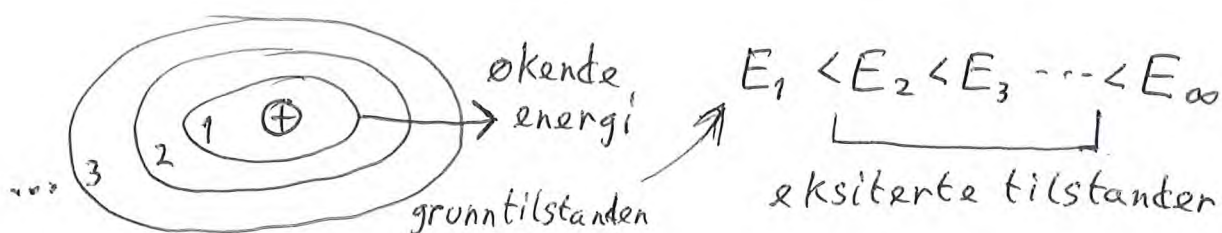 økende
energi
1
2
3
...
+
grunntilstanden
E₁ < E₂ < E₃ ... < E∞
eksiterte tilstander